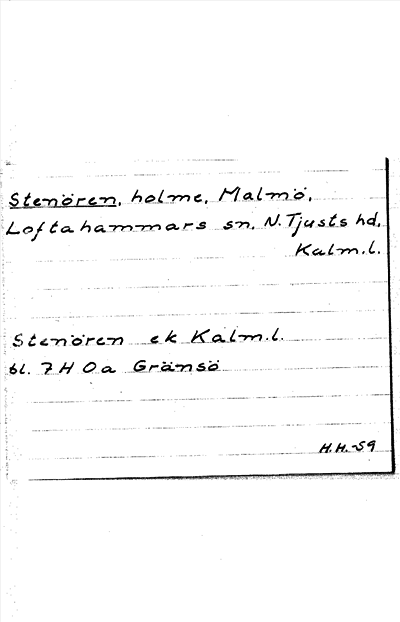 Stenören, holme, Malmö,
Loftahammars sn. N. Tjusts hd.
Kalm.l.
Stenören ek Kalm.l.
bl. 7 H 0a Gränsö
H.H.-59